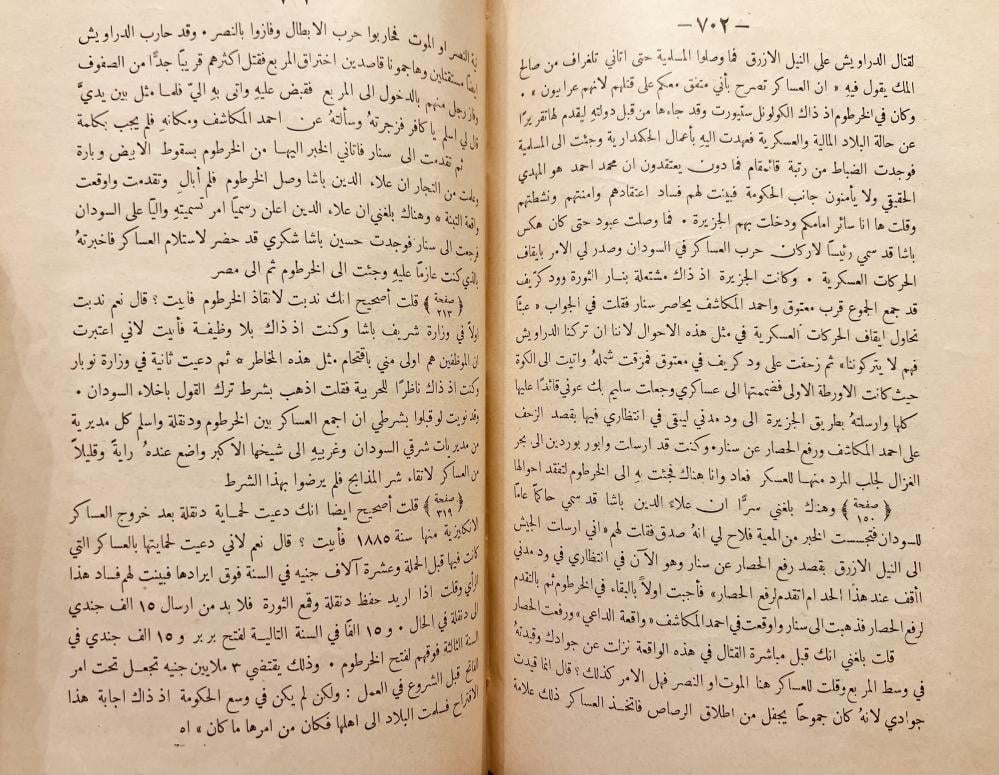 — ٧٠٢ —
لقتال الدراويش على النيل الازرق فما وصلوا المسلمية حتى اتاني تلغراف من صالح
الملك يقول فيه « ان العساكر تصرح بأني متفق معكم على قتلهم لانهم عرابيون » .
وكان في الخرطوم اذ ذاك الكولونل ستيورت وقد جاءها من قبل دولته ليقدم لها تقريرًا
عن حالة البلاد المالية والعسكرية فعهدت اليه بأعمال الحكمدارية وجئت الى المسلمية
فوجدت الضباط من رتبة قائمقام فما دون يعتقدون ان محمد احمد هو المهدي
الحقيقي ولا يأمنون جانب الحكومة فبينت لهم فساد اعتقادهم وامنتهم ونشطتهم
وقلت ها انا سائر امامكم ودخلت بهم الجزيرة . فما وصلت عبود حتى كان هكس
باشا قد سمي رئيسًا لاركان حرب العساكر في السودان وصدر لي الامر بايقاف
الحركات العسكرية . وكانت الجزيرة اذ ذاك مشتعلة بنار الثورة وود كريف
قد جمع الجموع قرب معتوق واحمد المكاشف يحاصر سنار فقلت في الجواب « عبثًا
نحاول ايقاف الحركات العسكرية في مثل هذه الاحوال لاننا ان تركنا الدراويش
فهم لا يتركوننا » ثم زحفت على ود كريف في معتوق فمزقت شمله واتيت الى الكوة
حيث كانت الاورطة الاولى فضممتها الى عساكري وجعلت سليم بك عوني قائدًا عليها
كلها وارسلته بطريق الجزيرة الى ود مدني ليبقى في انتظاري فيها بقصد الزحف
على احمد المكاشف ورفع الحصار عن سنار . وكنت قد ارسلت وابور بوردين الى بحر
الغزال لجلب المرد منها للعسكر فعاد وانا هناك فجئت به الى الخرطوم لتفقد احوالها
﴿ صفحة ١٥٠ ﴾ وهناك بلغني سرًّا ان علاء الدين باشا قد سمي حاكمًا عامًا
للسودان فتجسست الخبر من المعية فلاح لي انه صدق فقلت لهم « اني ارسلت الجيش
الى النيل الازرق بقصد رفع الحصار عن سنار وهو الآن في انتظاري في ود مدني
أأقف عند هذا الحد ام اتقدم لرفع الحصار » فأجبت اولاً بالبقاء في الخرطوم ثم بالتقدم
لرفع الحصار فذهبت الى سنار واوقعت في احمد المكاشف « واقعة الداعي » ورفعت الحصار
قلت بلغني انك قبل مباشرة القتال في هذه الواقعة نزلت عن جوادك وقيدته
في وسط المربع وقلت للعساكر هنا الموت او النصر فهل الامر كذلك ؟ قال انما قيدت
جوادي لانه كان جموحًا يجفل من اطلاق الرصاص فاتخذ العساكر ذلك علامة
النصر او الموت فحاربوا حرب الابطال وفازوا بالنصر . وقد حارب الدراويش
ايضًا مستقتلين وهاجمونا قاصدين اختراق المربع فقتل اكثرهم قريبًا جدًّا من الصفوف
وفاز رجل منهم بالدخول الى المربع فقبض عليه واتى به اليّ فلما مثل بين يديَّ
قال لي اسلم يا كافر فزجرته وسألته عن احمد المكاشف ومكانه فلم يجب بكلمة
ثم تقدمت الى سنار فاتاني الخبر اليها من الخرطوم بسقوط الابيض وبارة
وعلمت من التجار ان علاء الدين باشا وصل الخرطوم فلم أبالِ وتقدمت واوقعت
واقعة التبنة » وهناك بلغني ان علاء الدين اعلن رسميًا امر تسميته واليًا على السودان
فرجعت الى سنار فوجدت حسين باشا شكري قد حضر لاستلام العساكر فاخبرته
بالذي كنت عازمًا عليه وجئت الى الخرطوم ثم الى مصر
﴿ صفحة ٣١٣ ﴾ قلت أصحيح انك ندبت لانقاذ الخرطوم فابيت ؟ قال نعم ندبت
اولاً في وزارة شريف باشا وكنت اذ ذاك بلا وظيفة فأبيت لاني اعتبرت
ان الموظفين هم اولى مني باقتحام مثل هذه المخاطر » ثم دعيت ثانية في وزارة نوبار
وكنت اذ ذاك ناظرًا للحربية فقلت اذهب بشرط ترك القول باخلاء السودان .
وقد نويت لو قبلوا بشرطي ان اجمع العساكر بين الخرطوم ودنقلة واسلم كل مديرية
من مديريات شرقي السودان وغربيه الى شيخها الاكبر واضع عنده رايةً وقليلاً
من العساكر لاتقاء شر المذابح فلم يرضوا بهذا الشرط
﴿ صفحة ٣١٩ ﴾ قلت أصحيح ايضا انك دعيت لحماية دنقلة بعد خروج العساكر
الانكليزية منها سنة ١٨٨٥ فأبيت ؟ قال نعم لاني دعيت لحمايتها بالعساكر التي
كانت فيها قبل الحملة وعشرة آلاف جنيه في السنة فوق ايرادها فبينت لهم فساد هذا
الرأي وقلت اذا اريد حفظ دنقلة وقمع الثورة فلا بد من ارسال ١٥ الف جندي
الى دنقلة في الحال . و ١٥ الفًا في السنة التالية لفتح بربر و ١٥ الف جندي في
السنة الثالثة فوقهم لفتح الخرطوم . وذلك يقتضي ٣ ملايين جنيه تجعل تحت امر
الفاتح قبل الشروع في العمل : ولكن لم يكن في وسع الحكومة اذ ذاك اجابة هذا
الاقتراح فسلمت البلاد الى اهلها فكان من امرها ما كان » اه